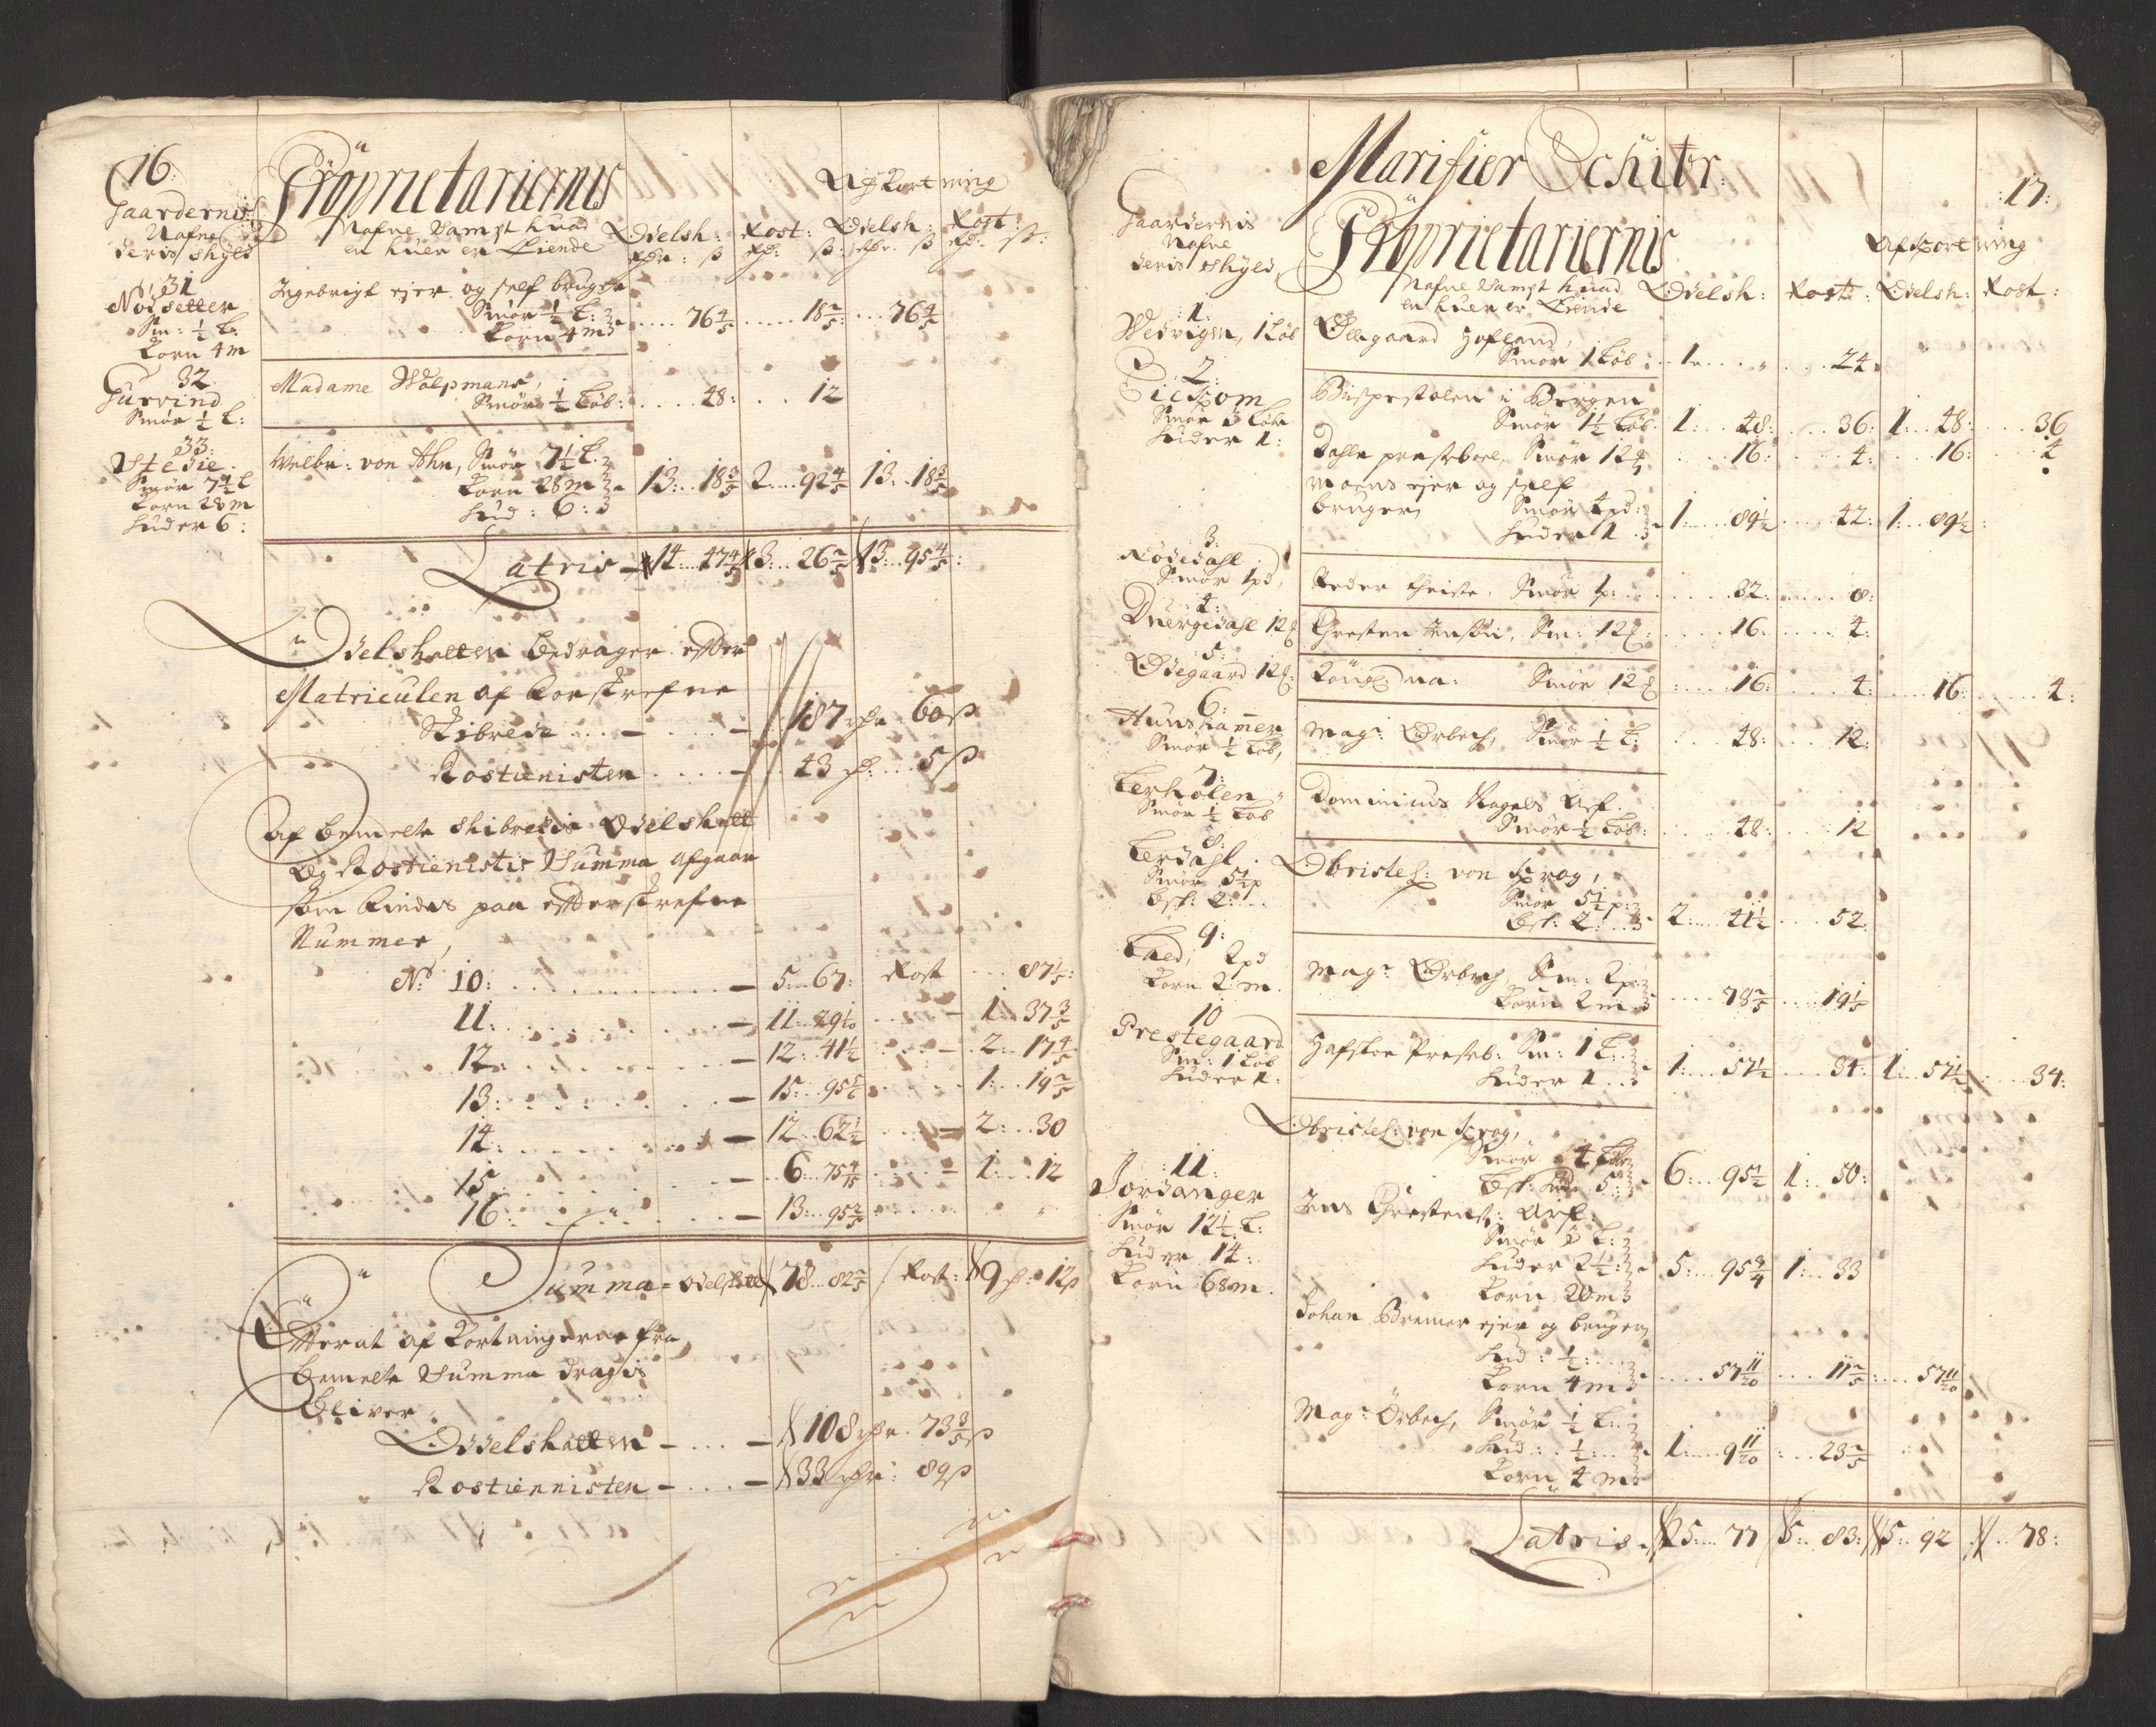 16:
Gaardernis
Nafne
deris skyld
Proprietariernis
Nafne Sampt huad
en huer er Eiende
Odelsh: Rost:
Afkortning
Odelsh: Rost:
Rdr: ß Rd: ß: Rdr: ß Rd: ß:
No 31
Nodsetter
Sm: ½ L:
Korn 4 m
Ingebrigt ejer og self bruger
Smör ½ L:
Korn 4 m
76 4/5 18 2/5: 76 4/5
32
Gurvind
Smör ½ L:
Madame Wolpmans,
Smör ½ Löb: 48: 12
33:
Stedie
Smör 7½ L
Korn 28 m
Huder 6:
Welbr: von Ahn, Smör 7½ L.
Korn 28 m
Hud: 6:
13: 18 3/5 2: 92 4/5 13: 18 3/5
Latris 14: 47 4/5 3: 26 2/5 13: 95 4/5:
Odelskatten bedrager efter
Matriculen af forskrefne
Skibrede 187 rdr 60 ß
Rostienisten 43 rd: 5 ß
Af bemelte skibredis Odelskatt
og Rostienistis Summa afgaar
som findes paa efterskrefne
Nummer,
No: 10: 5: 67: Rost 87 1/5:
11: 11: 29 1/10 1: 37 3/5
12: 12: 41½ 2: 17 4/5
13: 15: 95 5/6 1: 19 2/5
14: 12: 62½ 2: 30
15 6: 75 4/15 1: 12
16: 13: 95 2/5
Summa Odelskatt 78: 82 2/5 Rost: 9 rd: 12 ß
Efterat afkortningerne fra
bemelte Summa dragis
bliver
Odelskatten 108 rdr. 73 3/5 ß
Rostiennisten 33 rdr: 89 ß
Marifier Schibr:
17:
Gaardernis
Nafne
deris skyld,
Proprietariernis
Nafne Sampt huad
en huer er Eiende
Odelsh: Rost:
Afkortning
Odelsh: Rost:
1:
Wedvigen, 1 Löb
Ollegaard Hofland,
Smör 1 Löb: 1 24:
2:
Smör 3 Löb
Huder 1:
Bispestolen i Bergen
Smör 1½ Löb. 1: 48: 36: 1: 48: 36
Dahle prestebol, Smör 12 16: 4: 16: 4
Moens ejer og self
bruger, Smör 4 pd:
Huder 1 1: 89½ 42: 1: 89½:
3:
Rödedahl
Smör 1 pd,
Peder Christe, Smör 1 p: 32: 8:
4:
Duergedahl 12
Chresten Jensön, Sm: 12 16: 4:
5:
Ödegaard 12
Kongl: Ma: Smör 12 16: 4: 16: 4:
6:
Hunshamer
Smör ½ Löb,
Magr: Ørbech, Smör ½ L: 48: 12:
7:
Lerholen
Smör ½ Löb
Dominicus Nagels Arf.
Smör ½ Löb: 48: 12
8:
Lerdahl
Smör 5½ p
Bst: 2:
Obristel: von Krog,
Smör 5½ p:
Bst: 2: 2: 41½ 52:
9:
Laed, 2 pd
Korn 2 m.
Magr: Ørbech, Sm: 2 p:
Korn 2 m 78 2/5 19 1/5
10
Prestegaard
Sm: 1 Löb
Huder 1:
Hafsloe Presteb: Sm: 1 L:
Huder 1 1: 57½ 34: 1: 57½ 34:
11:
Jordanger
Smör 12½ L:
Huder 14:
Korn 68 m.
Obristel: von Krog,
Smör 4 Löb
Bst: 5: 6: 95½ 1: 50:
Jens Chrestens: Arf:
Smör 3 L:
Huder 2½:
Korn 20 m
5: 95 3/4 1: 33
Johan Bremer ejer og bruger,
Hud: ½:
Korn 4 m 57 11/20 11 2/5: 57 11/20
Magr: Ørbech, Smör ½ L:
Hud: ½:
Korn 4 m 1: 9 11/20: 23 2/5
Latris 25: 77 5: 83: 5: 92 78: